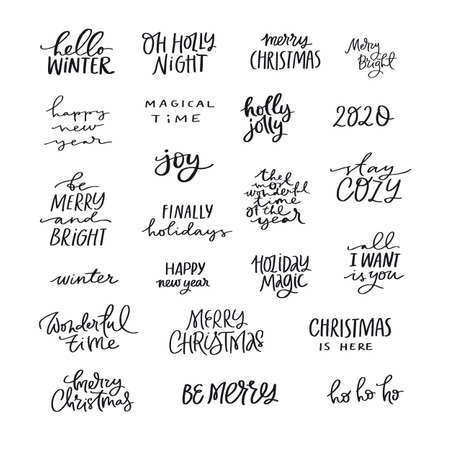 hello
WINTER
OH HOLLY
NIGHT
merry
CHRISTMAS
Merry
Bright
happy
new
year
MAGICAL
TIME
holly
jolly
2020
joy
be
MERRY
and
BRIGHT
the
most
wonderful
time
of the
year
stay
COZY
FINALLY
holidays
winter
HAPPY
new year
HOLIDAY
MAGIC
all
I WANT
is you
Wonderful
time
MERRY
CHRISTMAS
CHRISTMAS
IS HERE
Merry
Christmas
BE MERRY
ho ho ho